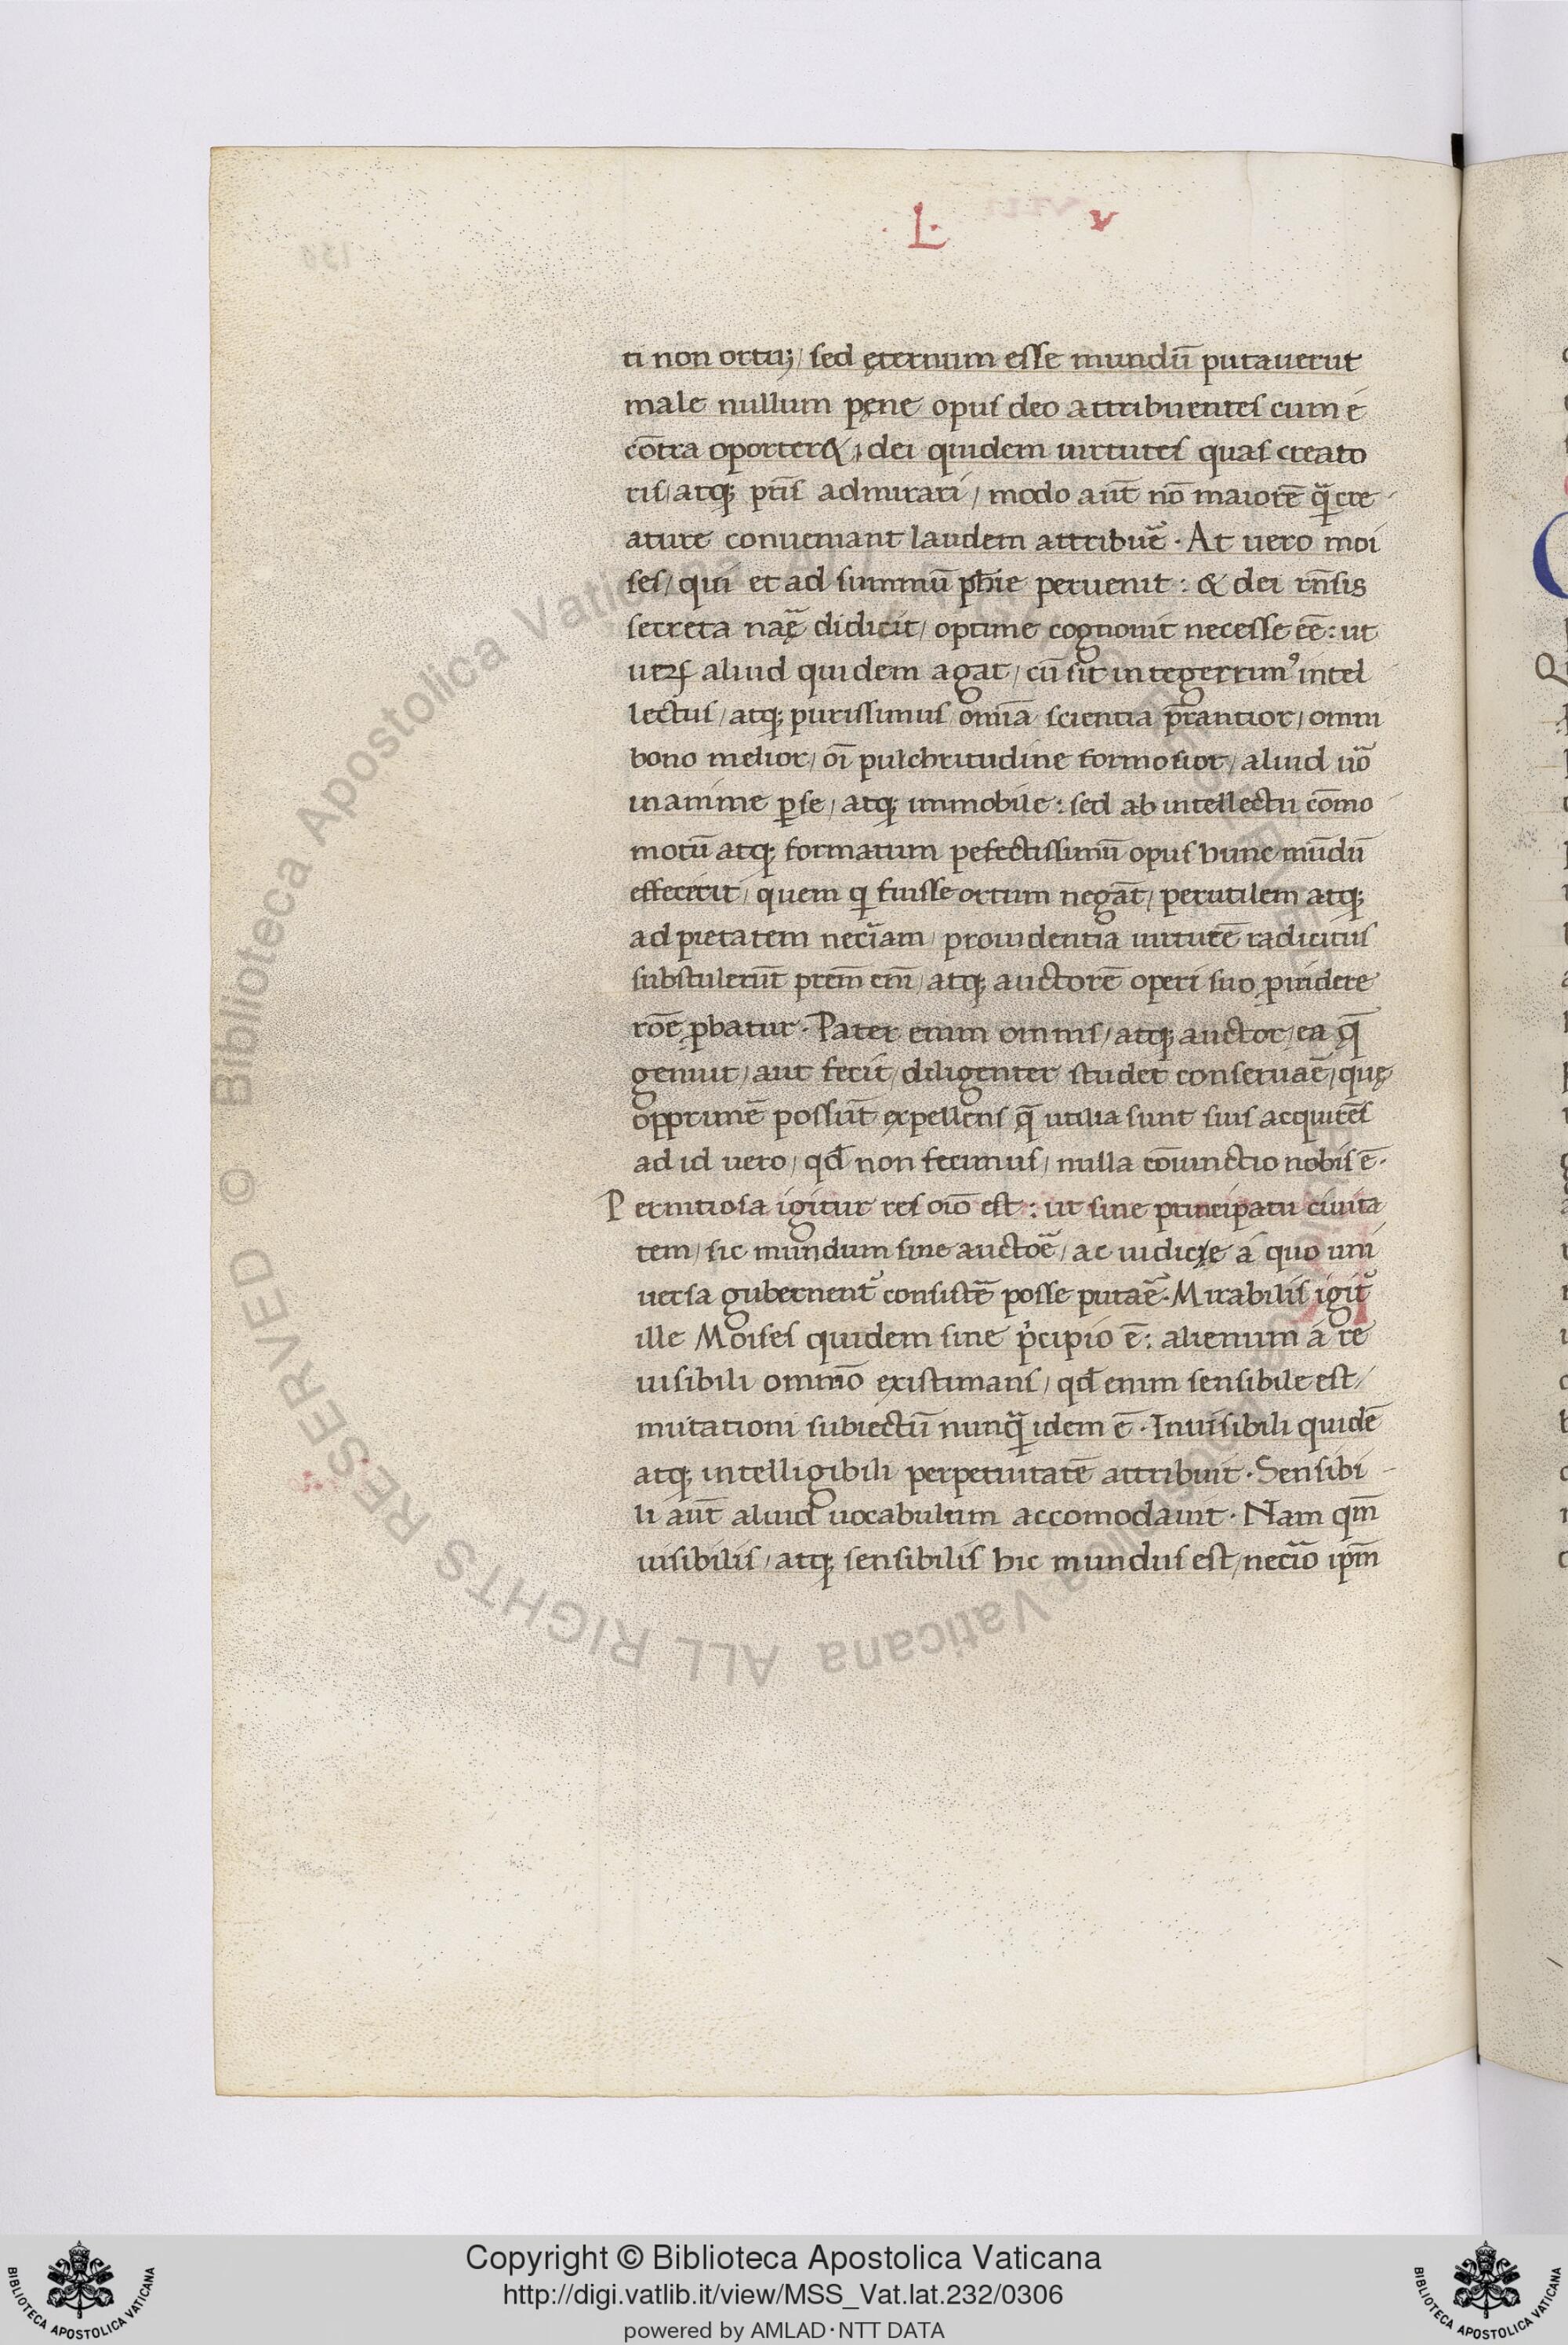 ·L· v
ti non ortuꝫ/ sed ęternum esse mundū putauerut
male nullum pęne opus deo attribuentes cum é
cōtra oporter&; dei quidem uirtutes quas creato
ris/ atqꝫ pr̄is admirari/ modo aūt nō maiorē q̄ cre-
ature conueniant laudem attribuē· At uero moi
ses/ qui et ad summū ph̄ie peruenit: & dei rn̄sis
secreta naē didicit/ optime cognouit necesse eē: ut
aliud quidem agat/ cū sit integerrimꝰ intel
lectus/ atqꝫ purissimus omīa scientia p̄rantior/ omni
bono melior/ oī pulchritudine formosior/ aliud uō
inanime ꝑ se/ atqꝫ immobile: sed ab intellectu cōmo
motū atqꝫ formatum pefectissimū opus hunc mūdū
effecerit/ quem q fuisse ortum negāt/ perutilem atqꝫ
ad pietatem neciam/ prouidentia uirtutē radicitus
substulerūt prem̄ em̄/ atqꝫ auctorē operi suo ꝓuidere
roē ꝓbatur· Pater enim omnis/ atqꝫ auctor/ ea q̄
genuit/ aut fecit/ diligenter studet conseruaē/ quę
opprimē possūt expellens q̄ utilia sunt suis acquirēs
ad id uero/ qd̄ non fecimus/ nulla cōiunctio nobis ē·
Pernitiosa igitur res oīo est: ut sine principatu ciuita
tem/ sic mundum sine auctoē/ ac iudice á quo uni
uersa gubernent᷑ consistē posse putaē· Mirabilis igit᷑
ille Moises quidem sine p̍cipio ē: alienum á re
uisibili omnīo existimans/ qd̄ enim sensibile est/
mutationi subiectū nunq̄ idem ē· Inuisibili quidē
atqꝫ intelligibili perpetuitatē attribuit· Sensibi-
li aūt aliud uocabulum accomodauit· Nam qm̄
uisibilis/ atqꝫ sensibilis hic mundus est/ necīo ip̄m
Copyright © Biblioteca Apostolica Vaticana
http://digi.vatlib.it/view/MSS_Vat.lat.232/0306
powered by AMLAD·NTT DATA
BIBLIOTECA APOSTOLICA VATICANA
BIBLIOTECA APOSTOLICA VATICANA
© Biblioteca Apostolica Vaticana ALL RIGHTS RESERVED